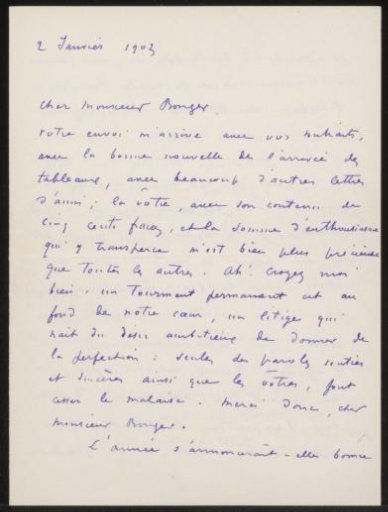 2 Janvier 1903
Cher Monsieur Bonger.
votre envoi m'arrive avec vos souhaits,
avec la bonne nouvelle de l'arrivée des
tableaux, avec beaucoup d'autres lettres
d'amis ; la vôtre, avec son contenu de
cinq cents francs, et la somme d'enthousiasme
qui y transperce m'est bien plus précieuse
que toutes les autres. Ah! croyez moi
bien : un tourment permanent est au
fond de notre cœur, un litige qui
nait du désir ambitieux de donner de
la perfection : seules des paroles senties
et sincères ainsi que les vôtres, font
cesser le malaise. Merci donc, cher
Monsieur Bonger.
L'année s'annoncerait-elle bonne